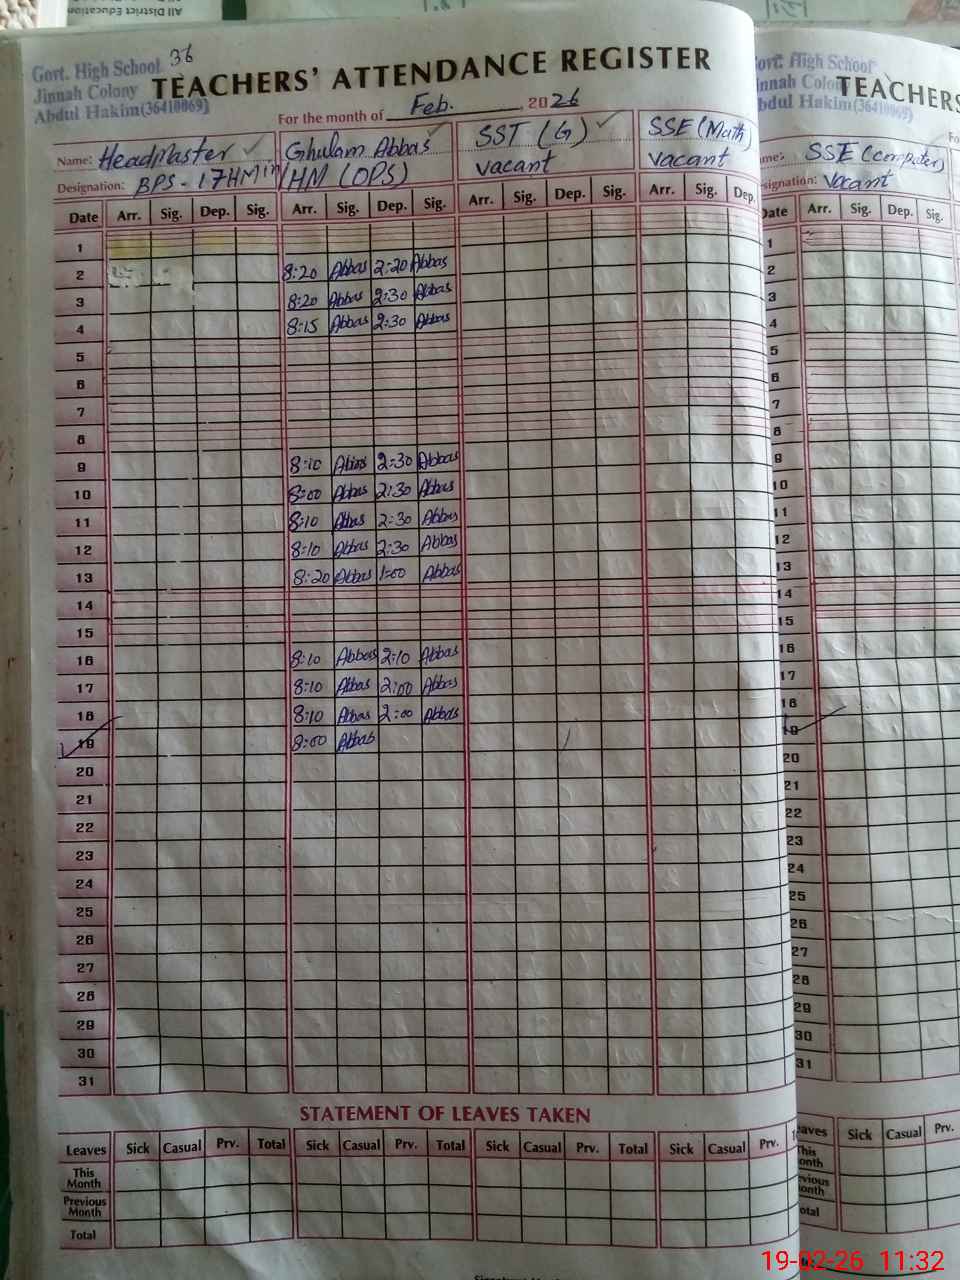 All District Education
Govt. High School 36
Jinnah Colony
Abdul Hakim(36410069)
TEACHERS' ATTENDANCE REGISTER
For the month of Feb. , 2026
Name: HeadMaster Ghulam Abbas SST (G) SSE (Math)
Designation: BPS-17HM HM (OPS) vacant vacant
Date Arr. Sig. Dep. Sig. Arr. Sig. Dep. Sig. Arr. Sig. Dep. Sig. Arr. Sig. Dep.
1
2 8:20 Abbas 2:20 Abbas
3 8:20 Abbas 2:30 Abbas
4 8:15 Abbas 2:30 Abbas
5
6
7
8
9 8:10 Abbas 2:30 Abbas
10 8:00 Abbas 2:30 Abbas
11 8:10 Abbas 2:30 Abbas
12 8:10 Abbas 2:30 Abbas
13 8:20 Abbas 1:00 Abbas
14
15
16 8:10 Abbas 2:10 Abbas
17 8:10 Abbas 2:00 Abbas
18 8:10 Abbas 2:00 Abbas
19 8:00 Abbas
20
21
22
23
24
25
26
27
28
29
30
31
STATEMENT OF LEAVES TAKEN
Leaves Sick Casual Prv. Total Sick Casual Prv. Total Sick Casual Prv. Total Sick Casual Prv.
This Month
Previous Month
Total
ovt. High School
innah Colon
bdul Hakim(36410069)
TEACHERS
Fo
me: SSE (computer)
signation: Vacant
Date Arr. Sig. Dep. Sig.
1
2
3
4
5
6
7
8
9
10
11
12
13
14
15
16
17
18
19
20
21
22
23
24
25
26
27
28
29
30
31
eaves Sick Casual Prv.
This
onth
evious
onth
otal
19-02-26 11:32